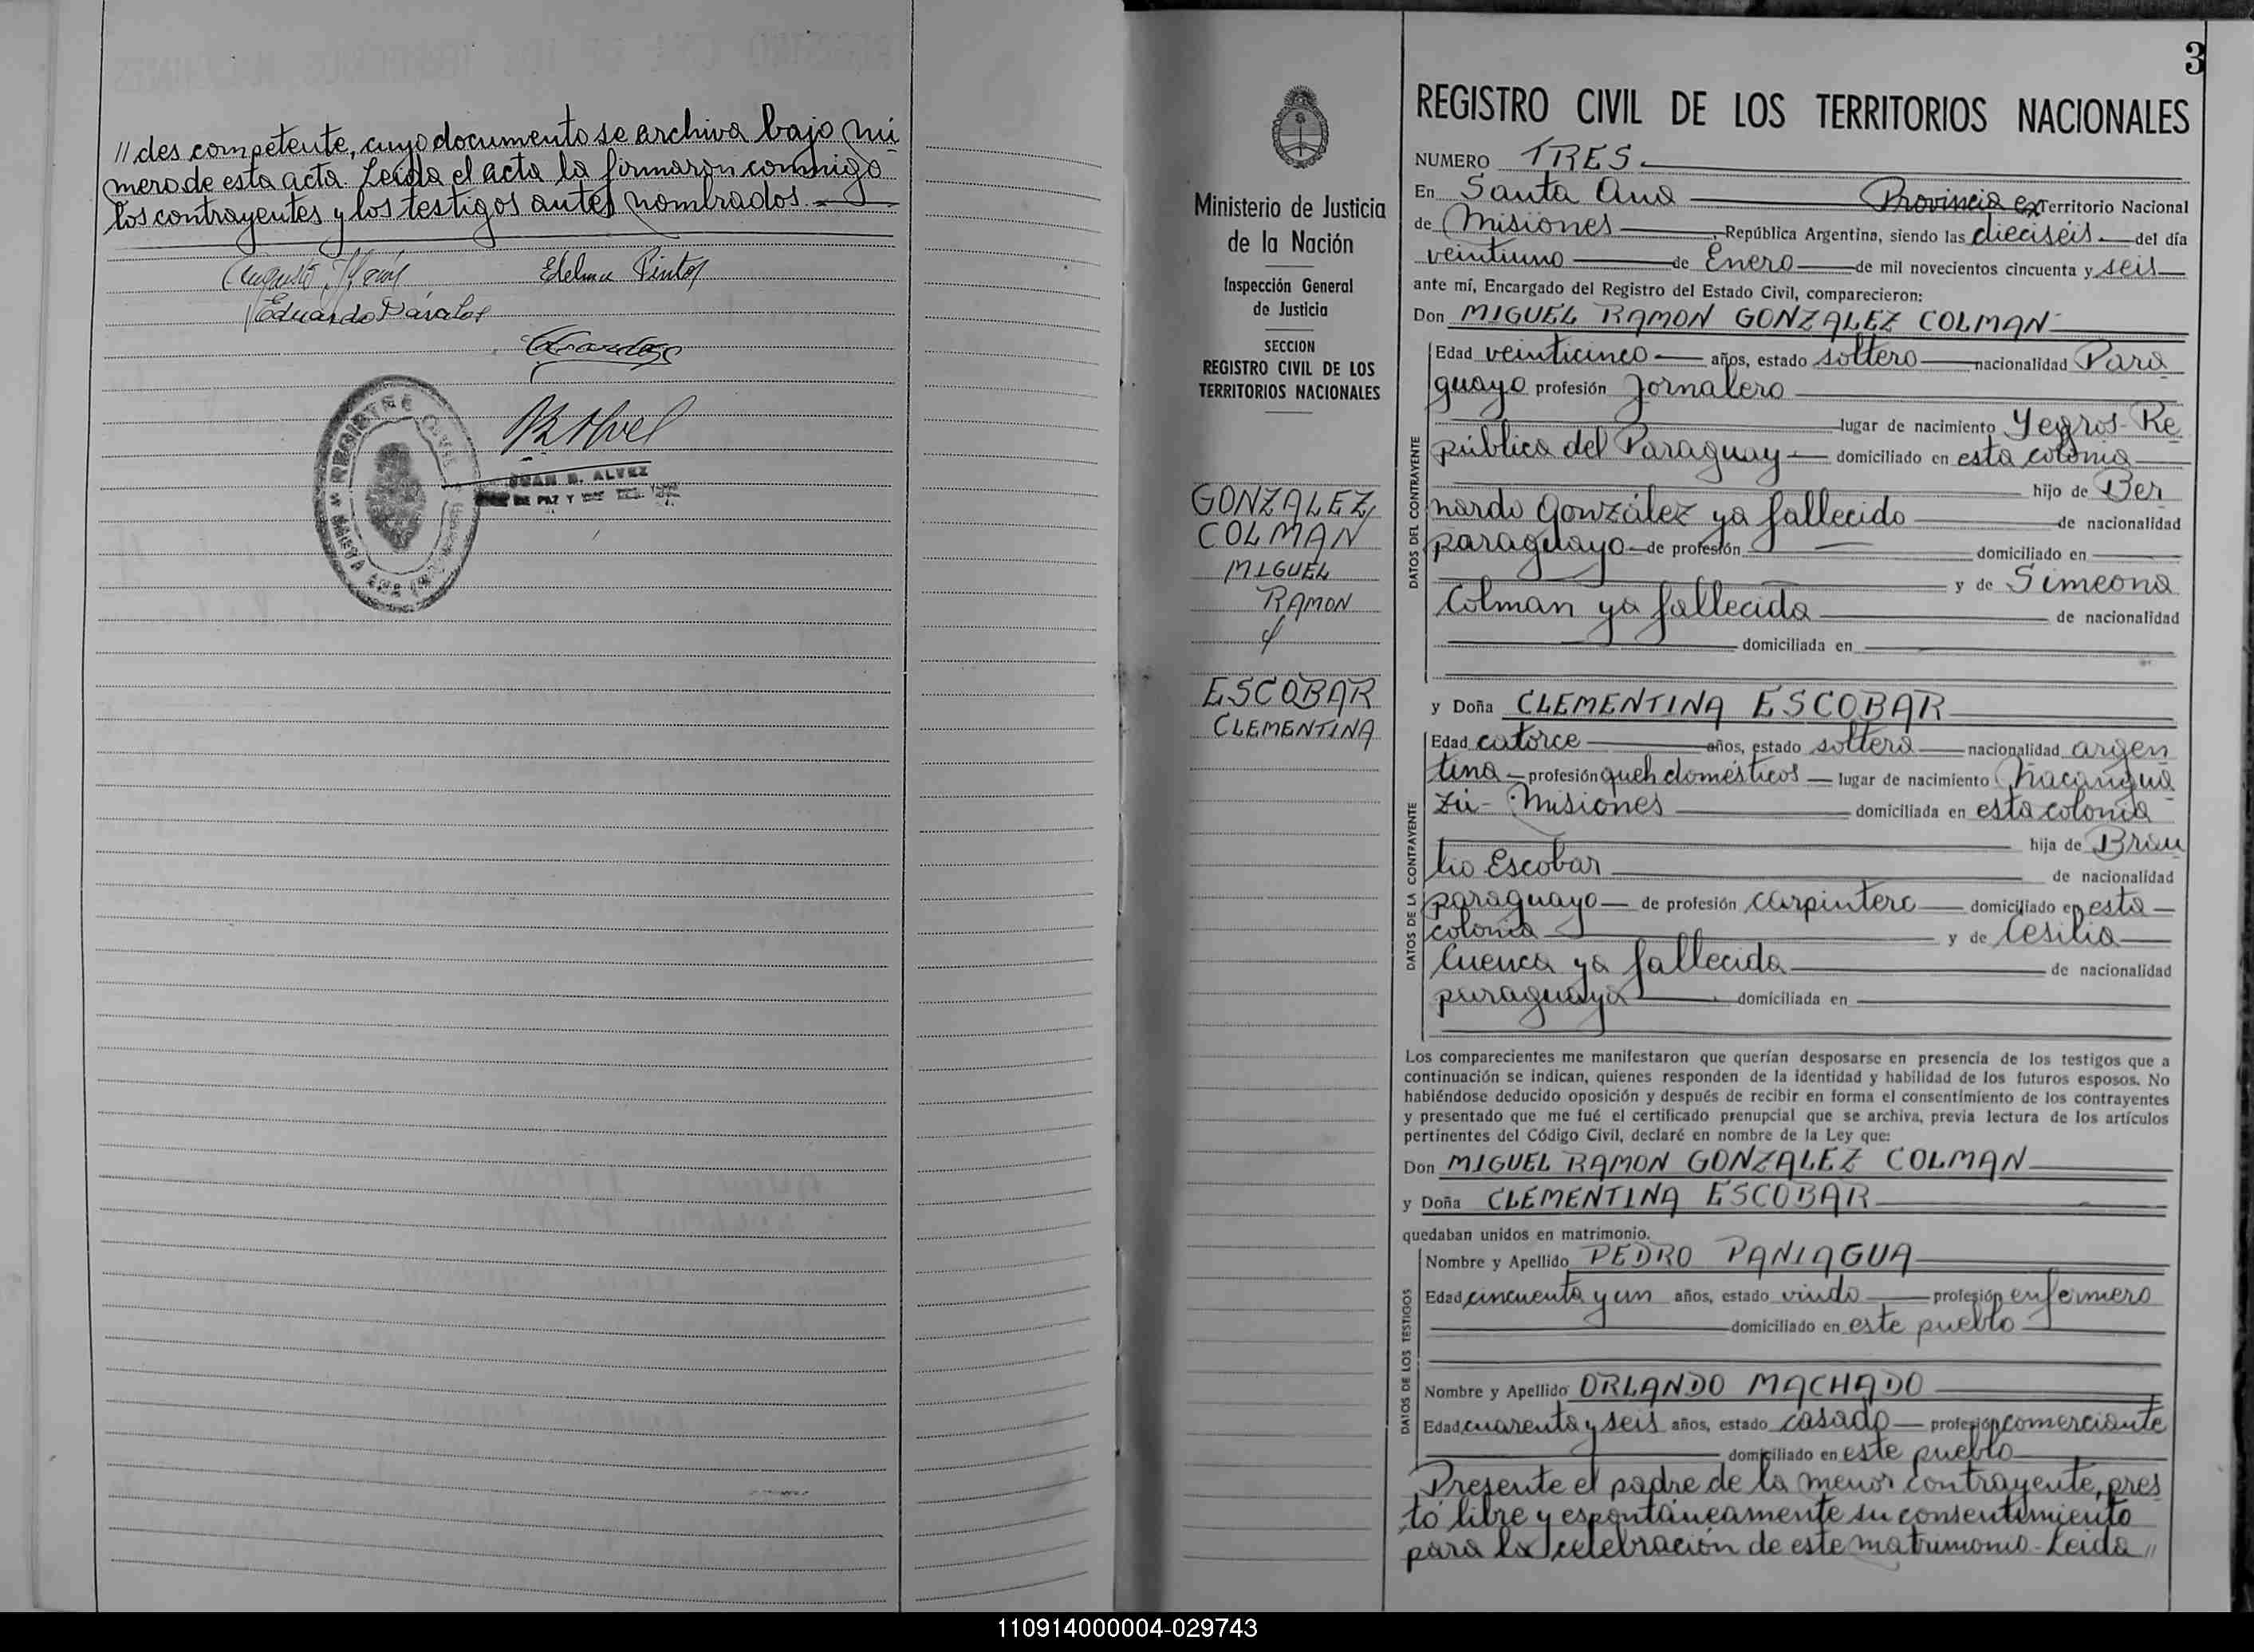 // des competente, cuyo documento se archiva bajo nú
mero de esta acta. Leída el acta la firmaron conmigo
los contrayentes y los testigos antes nombrados.
Edelma Pintos
Eduardo Dávalos
REGISTRO CIVIL
JUAN B. ALVEZ
3
REGISTRO CIVIL DE LOS TERRITORIOS NACIONALES
Ministerio de Justicia
de la Nación
Inspección General
de Justicia
SECCION
REGISTRO CIVIL DE LOS
TERRITORIOS NACIONALES
GONZALEZ
COLMAN
MIGUEL
RAMON
y
ESCOBAR
CLEMENTINA
NUMERO TRES.
En Santa Ana Provincia ex Territorio Nacional
de Misiones, República Argentina, siendo las dieciséis del día
veintiuno de Enero de mil novecientos cincuenta y seis
ante mí, Encargado del Registro del Estado Civil, comparecieron:
Don MIGUEL RAMON GONZALEZ COLMAN
DATOS DEL CONTRAYENTE
Edad veinticinco años, estado soltero nacionalidad Para
guayo profesión Jornalero
lugar de nacimiento Yegros-Re
pública del Paraguay domiciliado en esta colonia
hijo de Ber
nardo González ya fallecido de nacionalidad
paraguayo de profesión domiciliado en
y de Simeona
Colman ya fallecida de nacionalidad
domiciliada en
y Doña CLEMENTINA ESCOBAR
DATOS DE LA CONTRAYENTE
Edad catorce años, estado soltera nacionalidad argen
tina profesión queh domésticos lugar de nacimiento Ñacanguá
zú- Misiones domiciliada en esta colonia
hija de
lio Escobar de nacionalidad
paraguayo de profesión carpintero domiciliado en esta
colonia y de Cesilia
Cuenca ya fallecida de nacionalidad
paraguaya domiciliada en
Los comparecientes me manifestaron que querían desposarse en presencia de los testigos que a
continuación se indican, quienes responden de la identidad y habilidad de los futuros esposos. No
habiéndose deducido oposición y después de recibir en forma el consentimiento de los contrayentes
y presentado que me fué el certificado prenupcial que se archiva, previa lectura de los artículos
pertinentes del Código Civil, declaré en nombre de la Ley que:
Don MIGUEL RAMON GONZALEZ COLMAN
y Doña CLEMENTINA ESCOBAR
quedaban unidos en matrimonio.
DATOS DE LOS TESTIGOS
Nombre y Apellido PEDRO PANIAGUA
Edad cincuenta y un años, estado viudo profesión enfermero
domiciliado en este pueblo
Nombre y Apellido ORLANDO MACHADO
Edad cuarenta y seis años, estado casado profesión comerciante
domiciliado en este pueblo
Presente el padre de la menor contrayente, pres
tó libre y espontáneamente su consentimiento
para la celebración de este matrimonio- Leída //
110914000004-029743